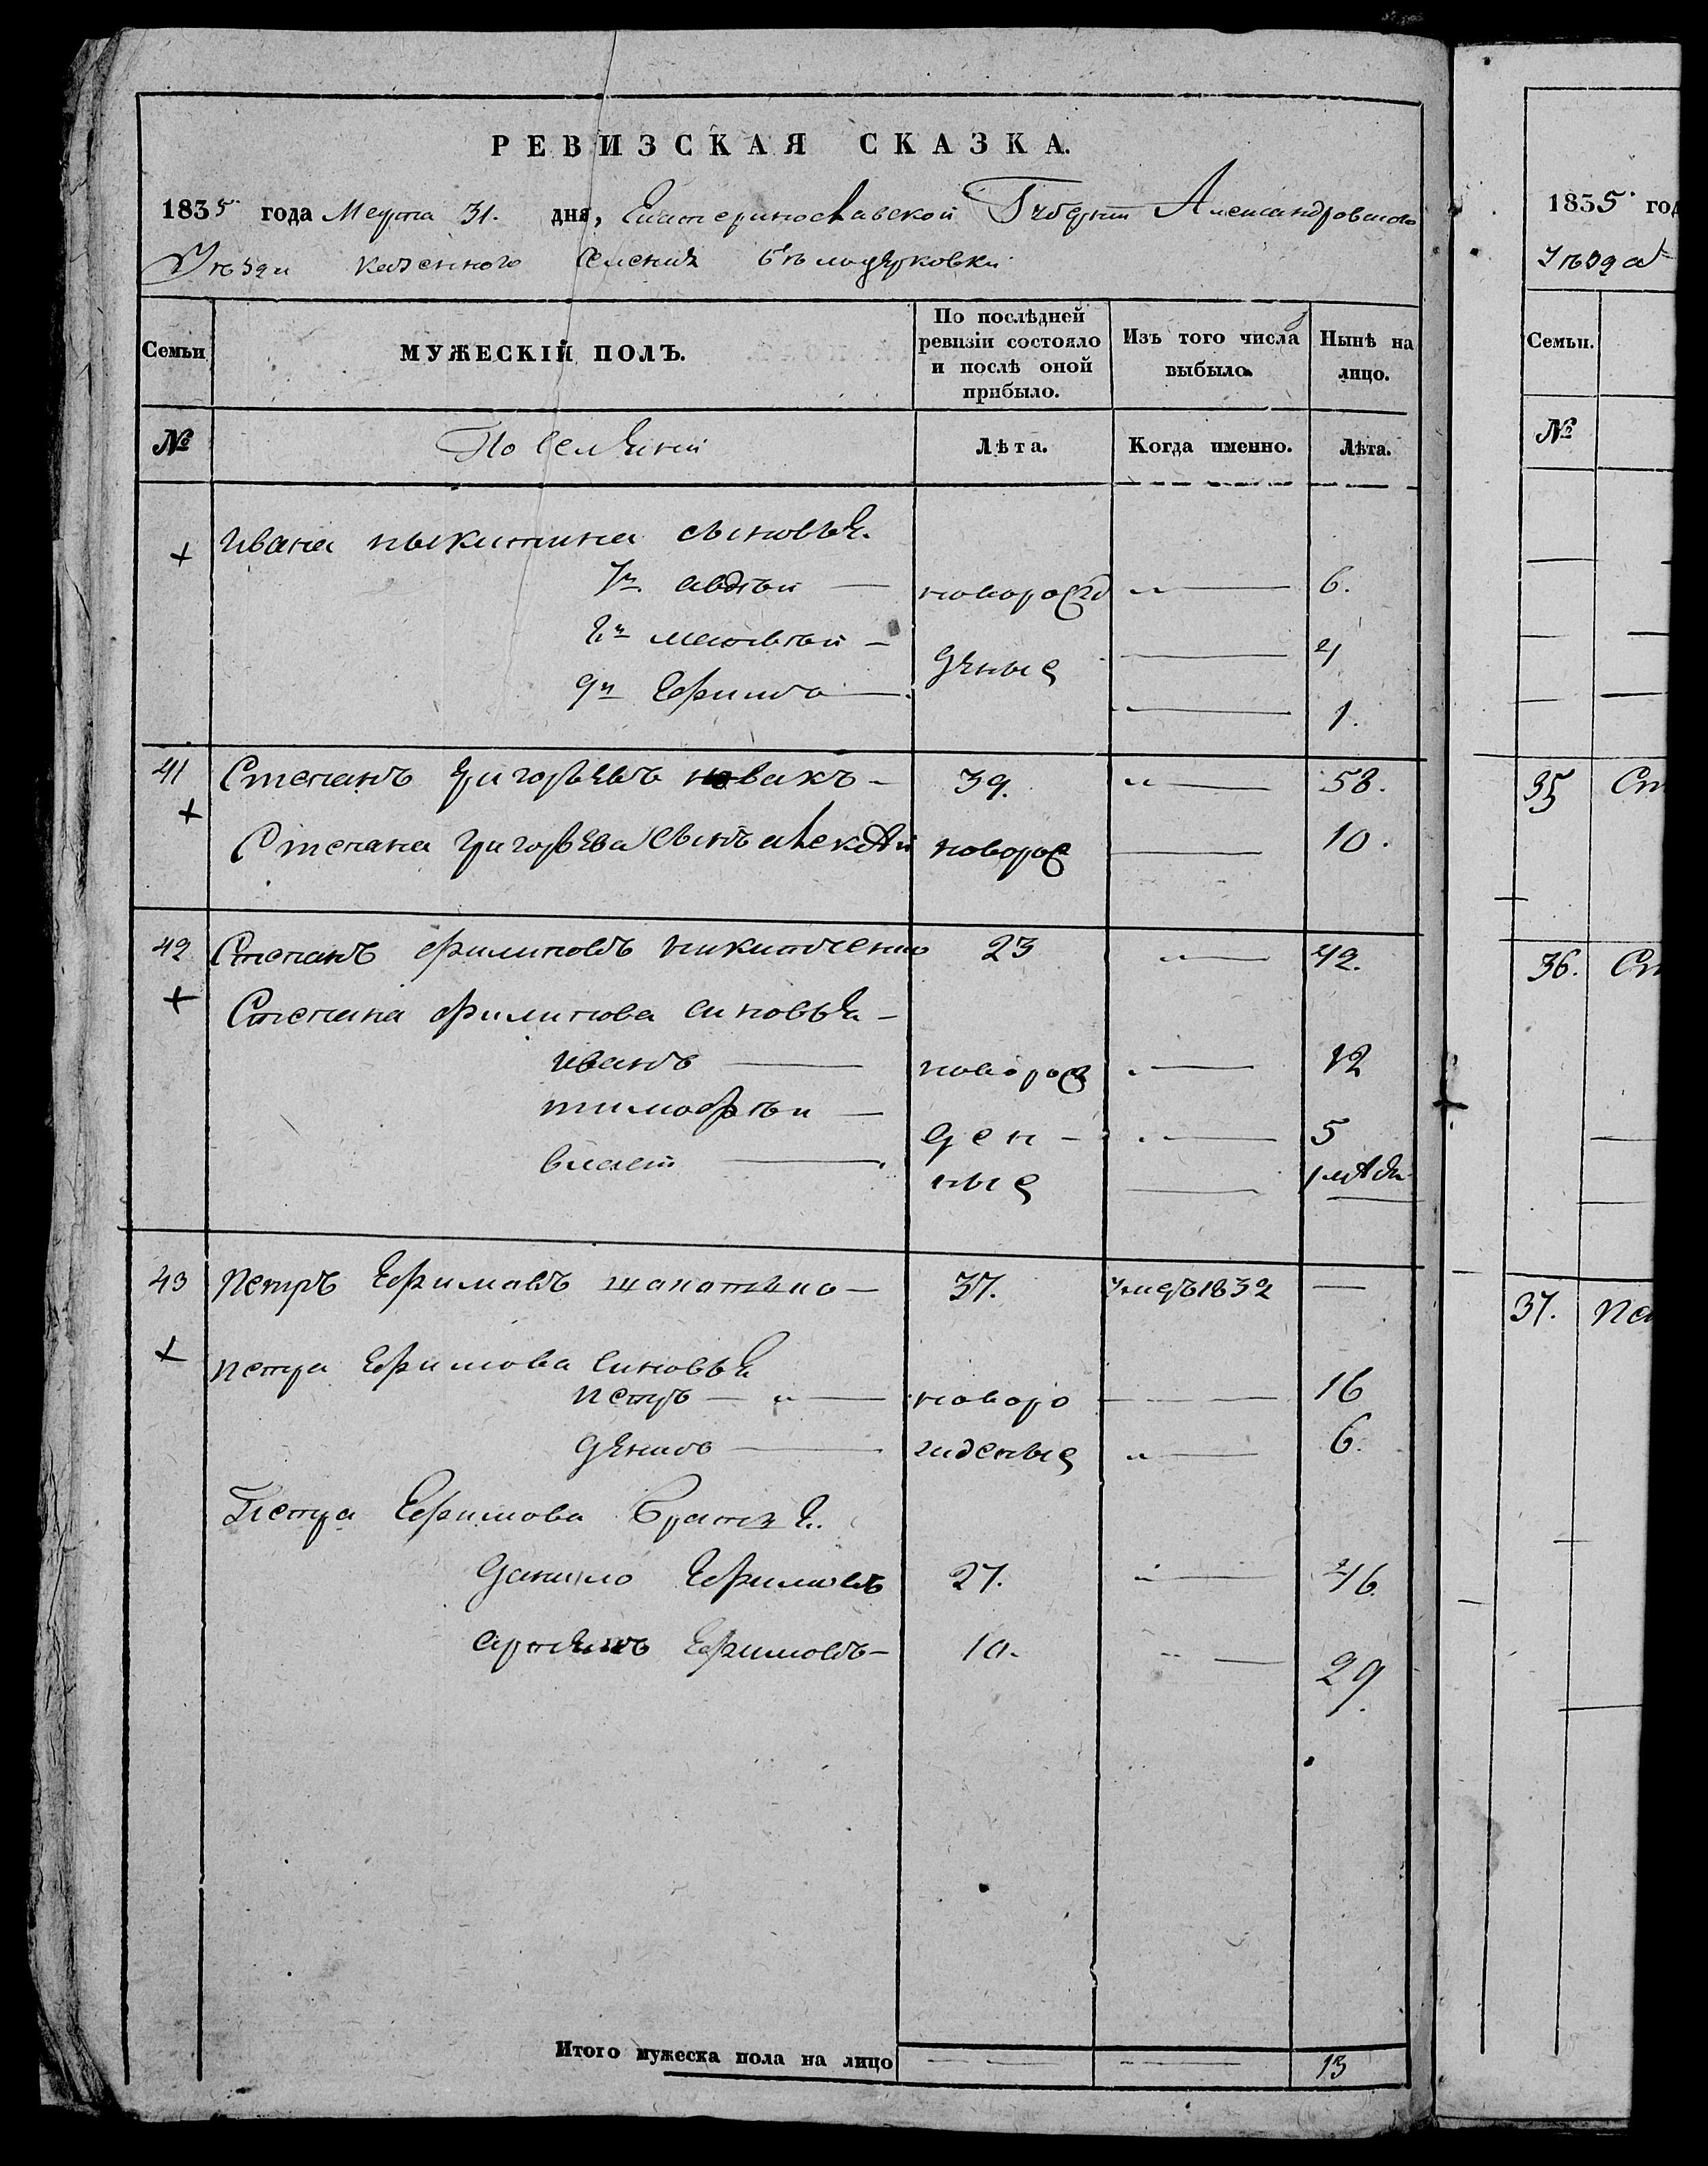 РЕВИЗСКАЯ СКАЗКА.
1835 года Марта 31. дня, Екатеринославской Губернии Александровского
Уѣзда казенного Селения Бѣлоцерковки
Семьи
МУЖЕСКІЙ ПОЛЪ.
По послѣдней ревизіи состояло и послѣ оной прибыло.
Изъ того числа выбыло.
Нынѣ на лицо.
№
Поселяни
Лѣта.
Когда именно.
Лѣта.
+ Ивана Ныкитина сыновья.
авдѣй — новорож — 6.
матвѣй — 4
деные
Ефимъ — 1.
41 Степанъ григорьевъ новакъ — 39. — 58.
+ Степана григорьева сынъ алексѣй новорож — 10.
42 Степанъ филиповъ никитченко 23 — 42.
+ Степана филипова синовья —
иванъ — новорож — 12
тимофѣй — ден — 5
власъ — ные — 1
43 Петръ Ефимовъ — 37. умеръ 1832 —
+ петра Ефимова синовья
петръ — новоро — 16
денисъ — жденые — 6.
Петра Ефимова братья.
данило Ефимовъ 27. — 46.
артемъ Ефимовъ — 10. — 29.
Итого мужеска пола на лицо — — 13
1835 год
Уѣзда
Семьи.
№
35 Ст
36. Ст
37. Пе